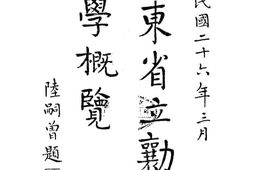 民國二十六年三月
東省立勷
學概覽
陸嗣曾題